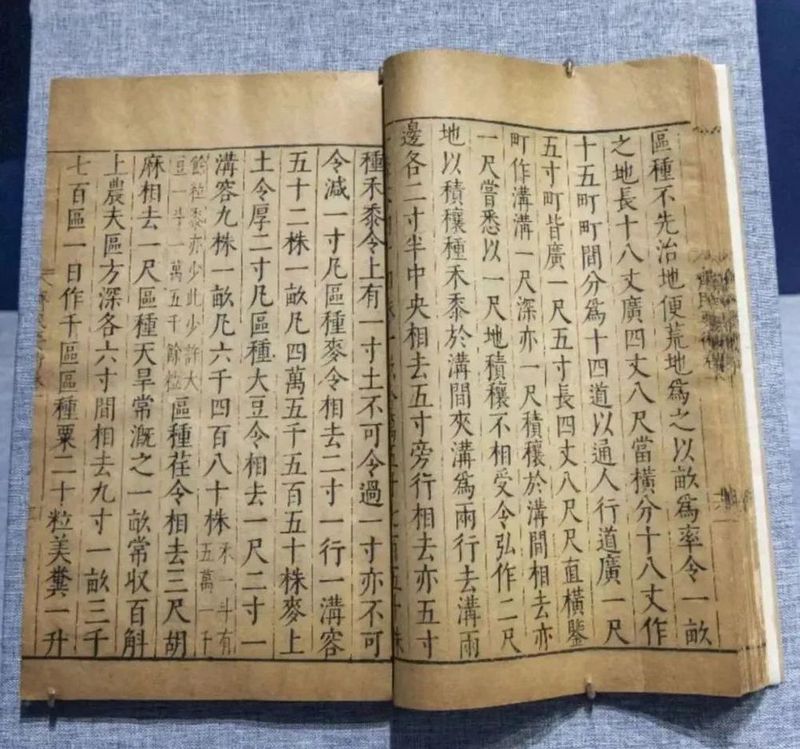 區種不先治地便荒地爲之以畝爲率令一畝
之地長十八丈廣四丈八尺當橫分十八丈作
十五町町間分爲十四道以通人行道廣一尺
五寸町皆廣一尺五寸長四丈八尺尺直橫鑿
町作溝溝一尺深亦一尺積穰於溝間相去亦
一尺嘗悉以一尺地積穰不相受令弘作二尺
地以積穰種禾黍於溝間夾溝爲兩行去溝兩
邊各二寸半中央相去五寸旁行相去亦五寸
種禾黍令上有一寸土不可令過一寸亦不可
令減一寸凡區種麥令相去二寸一行一溝容
五十二株一畝凡四萬五千五百五十株麥上
土令厚二寸凡區種大豆令相去一尺二寸一
溝容九株一畝凡六千四百八十株禾一斗有五萬一千
餘粒黍亦少此少許大豆一斗一萬五千餘粒區種荏令相去三尺胡
麻相去一尺區種天旱常溉之一畝常収百斛
上農夫區方深各六寸間相去九寸一畝三千
七百區一日作千區區種粟二十粒美糞一升